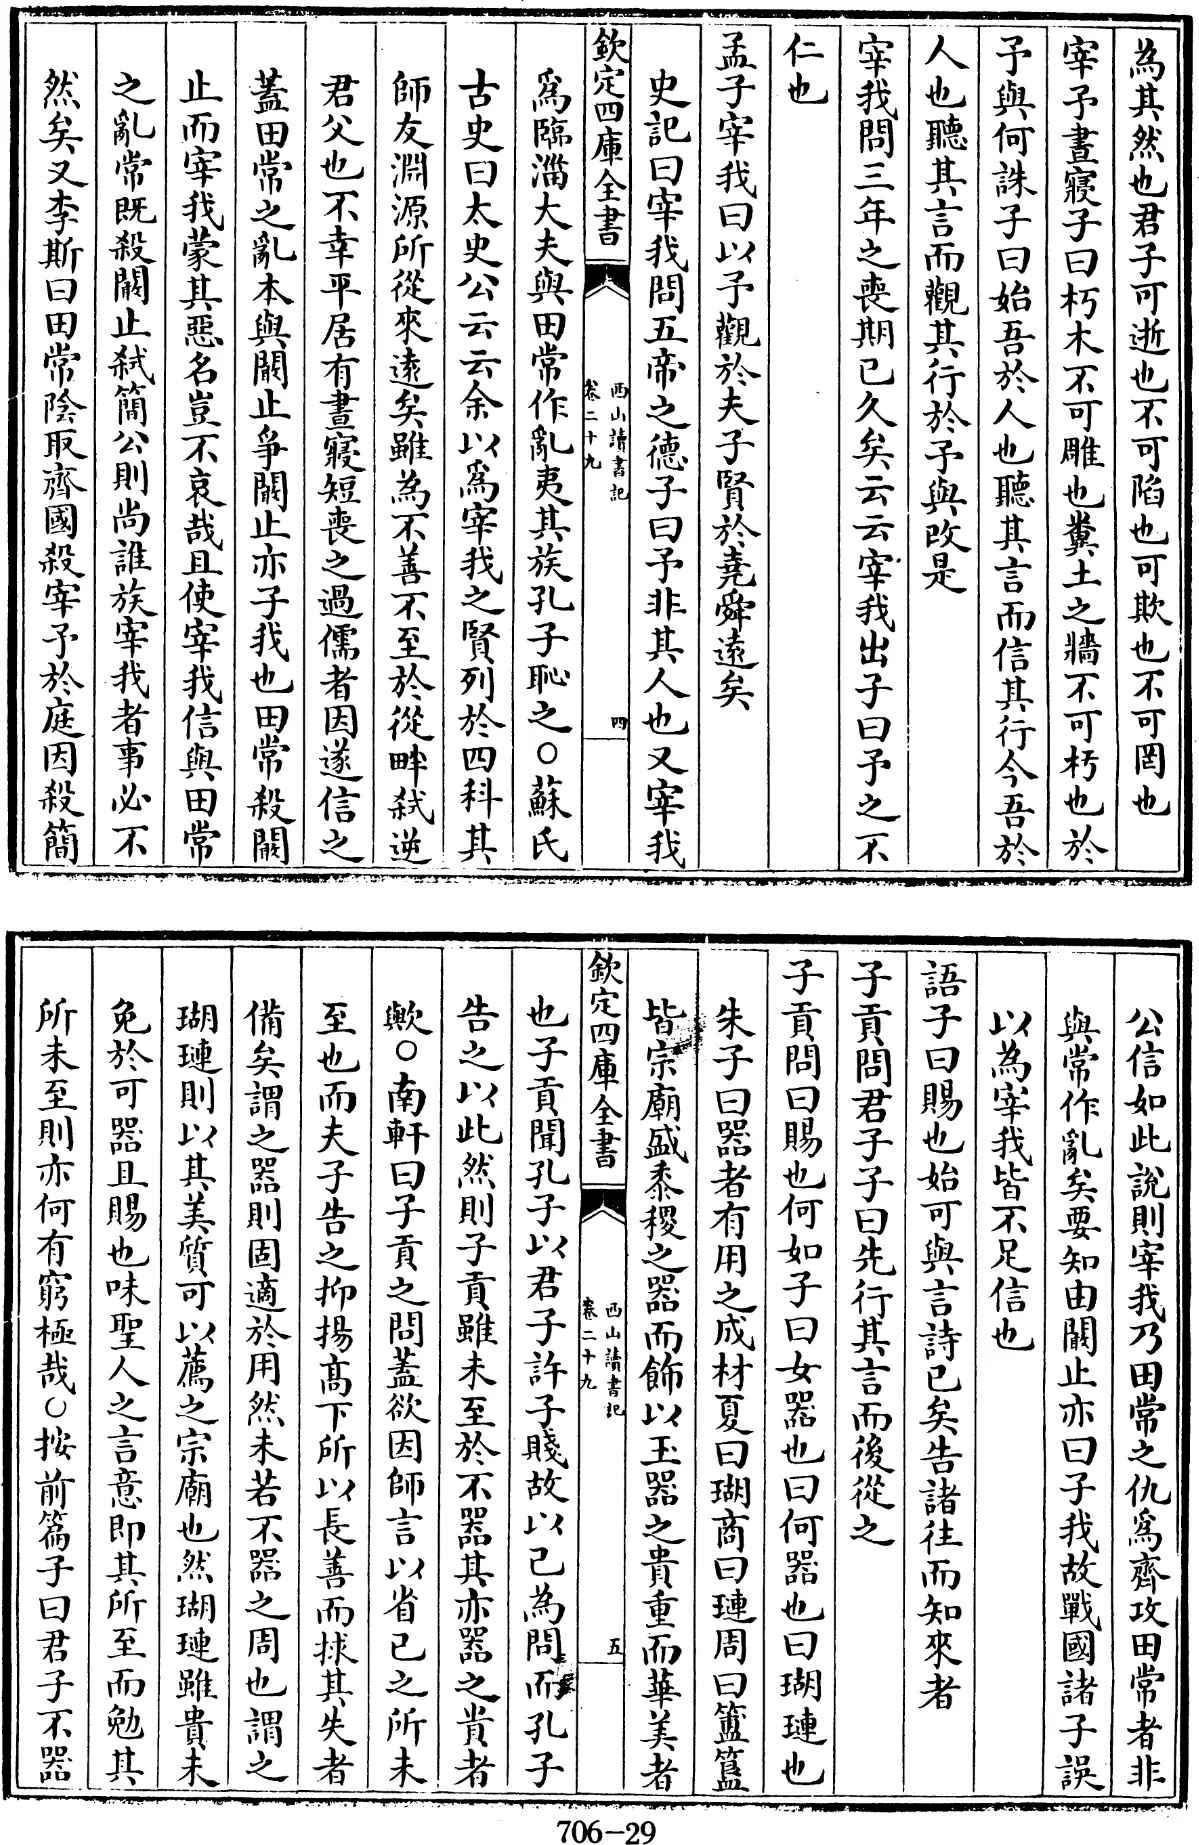 為其然也君子可逝也不可陷也可欺也不可罔也
宰予晝寢子曰朽木不可雕也糞土之牆不可杇也於
予與何誅子曰始吾於人也聽其言而信其行今吾於
人也聽其言而觀其行於予與改是
宰我問三年之喪期已久矣云云宰我出子曰予之不
仁也
孟子宰我曰以予觀於夫子賢於堯舜遠矣
史記曰宰我問五帝之德子曰予非其人也又宰我
欽定四庫全書
西山讀書記
卷二十九
四
爲臨淄大夫與田常作亂夷其族孔子恥之○蘇氏
古史曰太史公云云余以爲宰我之賢列於四科其
師友淵源所從來遠矣雖為不善不至於從畔弑逆
君父也不幸平居有晝寢短喪之過儒者因遂信之
蓋田常之亂本與闞止爭闞止亦子我也田常殺闞
止而宰我蒙其惡名豈不哀哉且使宰我信與田常
之亂常既殺闞止弑簡公則尚誰族宰我者事必不
然矣又李斯曰田常陰取齊國殺宰予於庭因殺簡
公信如此說則宰我乃田常之仇爲齊攻田常者非
與常作亂矣要知由闞止亦曰子我故戰國諸子誤
以為宰我皆不足信也
語子曰賜也始可與言詩已矣告諸往而知來者
子貢問君子子曰先行其言而後從之
子貢問曰賜也何如子曰女器也曰何器也曰瑚璉也
朱子曰器者有用之成材夏曰瑚商曰璉周曰簠簋
皆宗廟盛黍稷之器而飾以玉器之貴重而華美者
欽定四庫全書
西山讀書記
卷二十九
五
也子貢聞孔子以君子許子賤故以己為問而孔子
告之以此然則子貢雖未至於不器其亦器之貴者
歟○南軒曰子貢之問蓋欲因師言以省己之所未
至也而夫子告之抑揚髙下所以長善而捄其失者
備矣謂之器則固適於用然未若不器之周也謂之
瑚璉則以其美質可以薦之宗廟也然瑚璉雖貴未
免於可器且賜也味聖人之言意即其所至而勉其
所未至則亦何有窮極哉○按前篇子曰君子不器
706-29